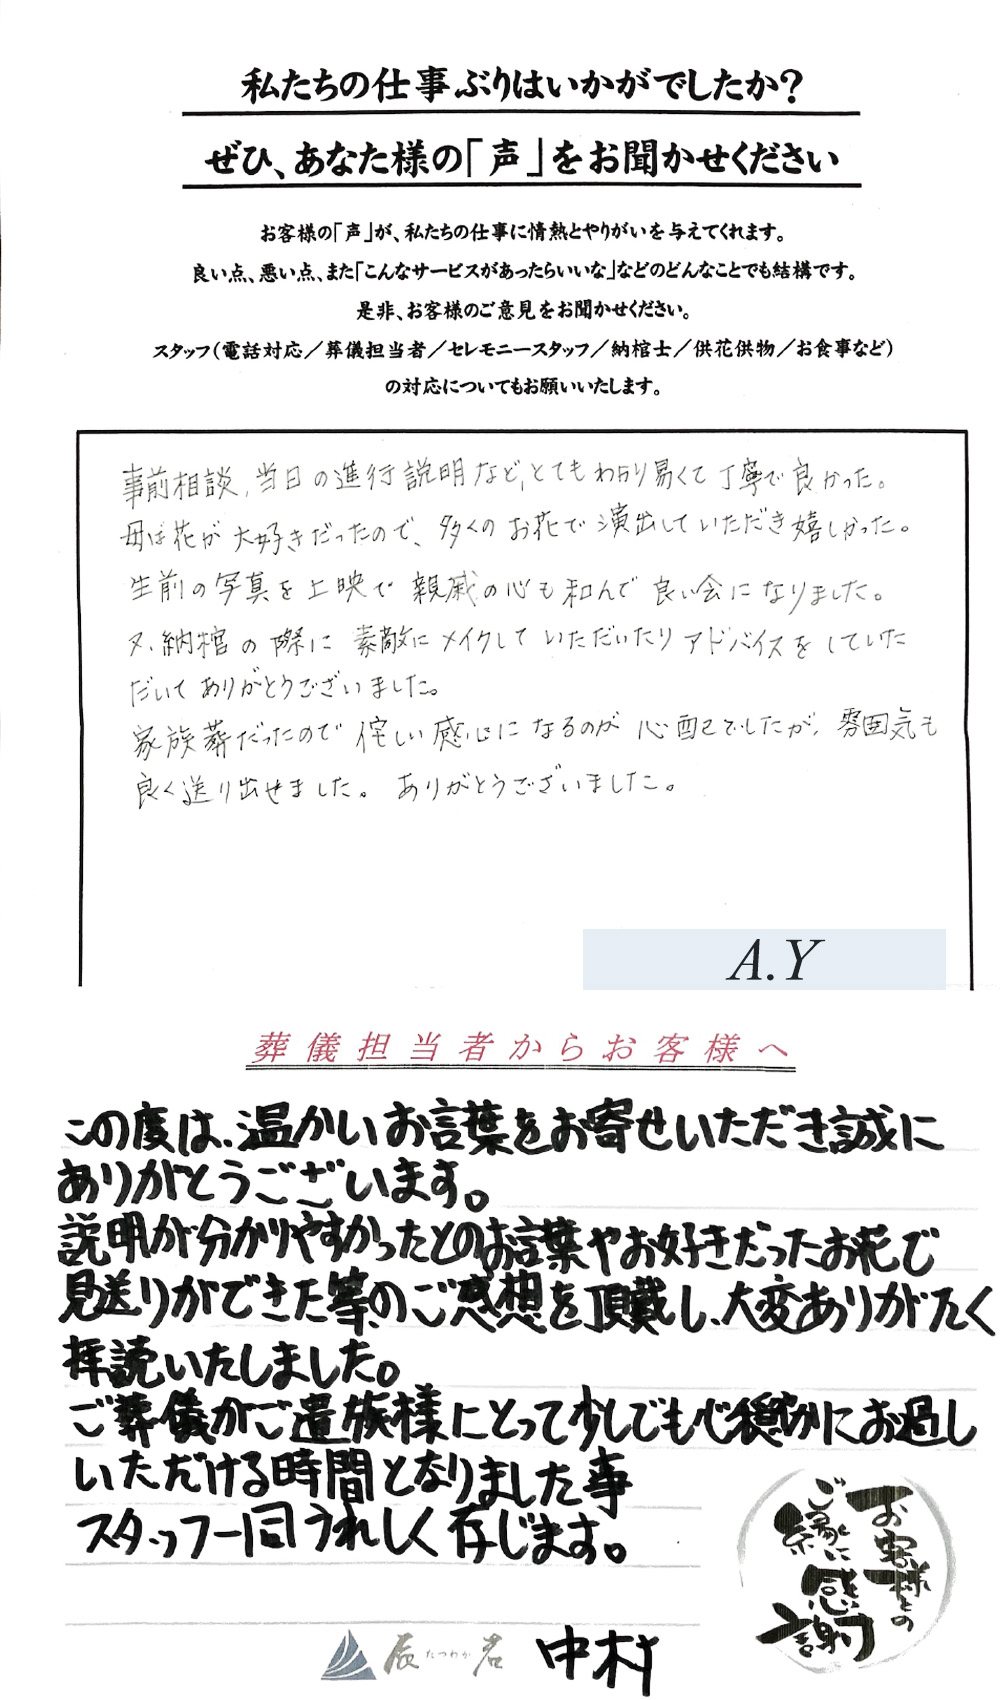 私たちの仕事ぶりはいかがでしたか?
ぜひ、あなた様の「声」をお聞かせください
お客様の「声」が、私たちの仕事に情熱とやりがいを与えてくれます。
良い点、悪い点、また「こんなサービスがあったらいいな」などのどんなことでも結構です。
是非、お客様のご意見をお聞かせください。
スタッフ(電話対応/葬儀担当者/セレモニースタッフ/納棺士/供花供物/お食事など)
の対応についてもお願いいたします。
事前相談、当日の進行説明など、とてもわかり易くて丁寧で良かった。
母は花が大好きだったので、多くのお花で演出していただき嬉しかった。
生前の写真を上映で親戚の心も和んで良い会になりました。
又、納棺の際に素敵にメイクしていただいたりアドバイスをしていた
だいてありがとうございました。
家族葬だったので侘しい感じになるのが心配でしたが、雰囲気も
良く送り出せました。ありがとうございました。
A.Y
葬儀担当者からお客様へ
この度は、温かいお言葉をお寄せいただき誠に
ありがとうございます。
説明が分かりやすかったとのお言葉やお好きだったお花で
見送りができた等のご感想を頂戴し、大変ありがたく
拝読いたしました。
ご葬儀がご遺族様にとって少しでも心穏やかにお過し
いただける時間となりました事
スタッフ一同うれしく存じます。
お客様との
ご縁に
感謝
辰若 たつわか 中村